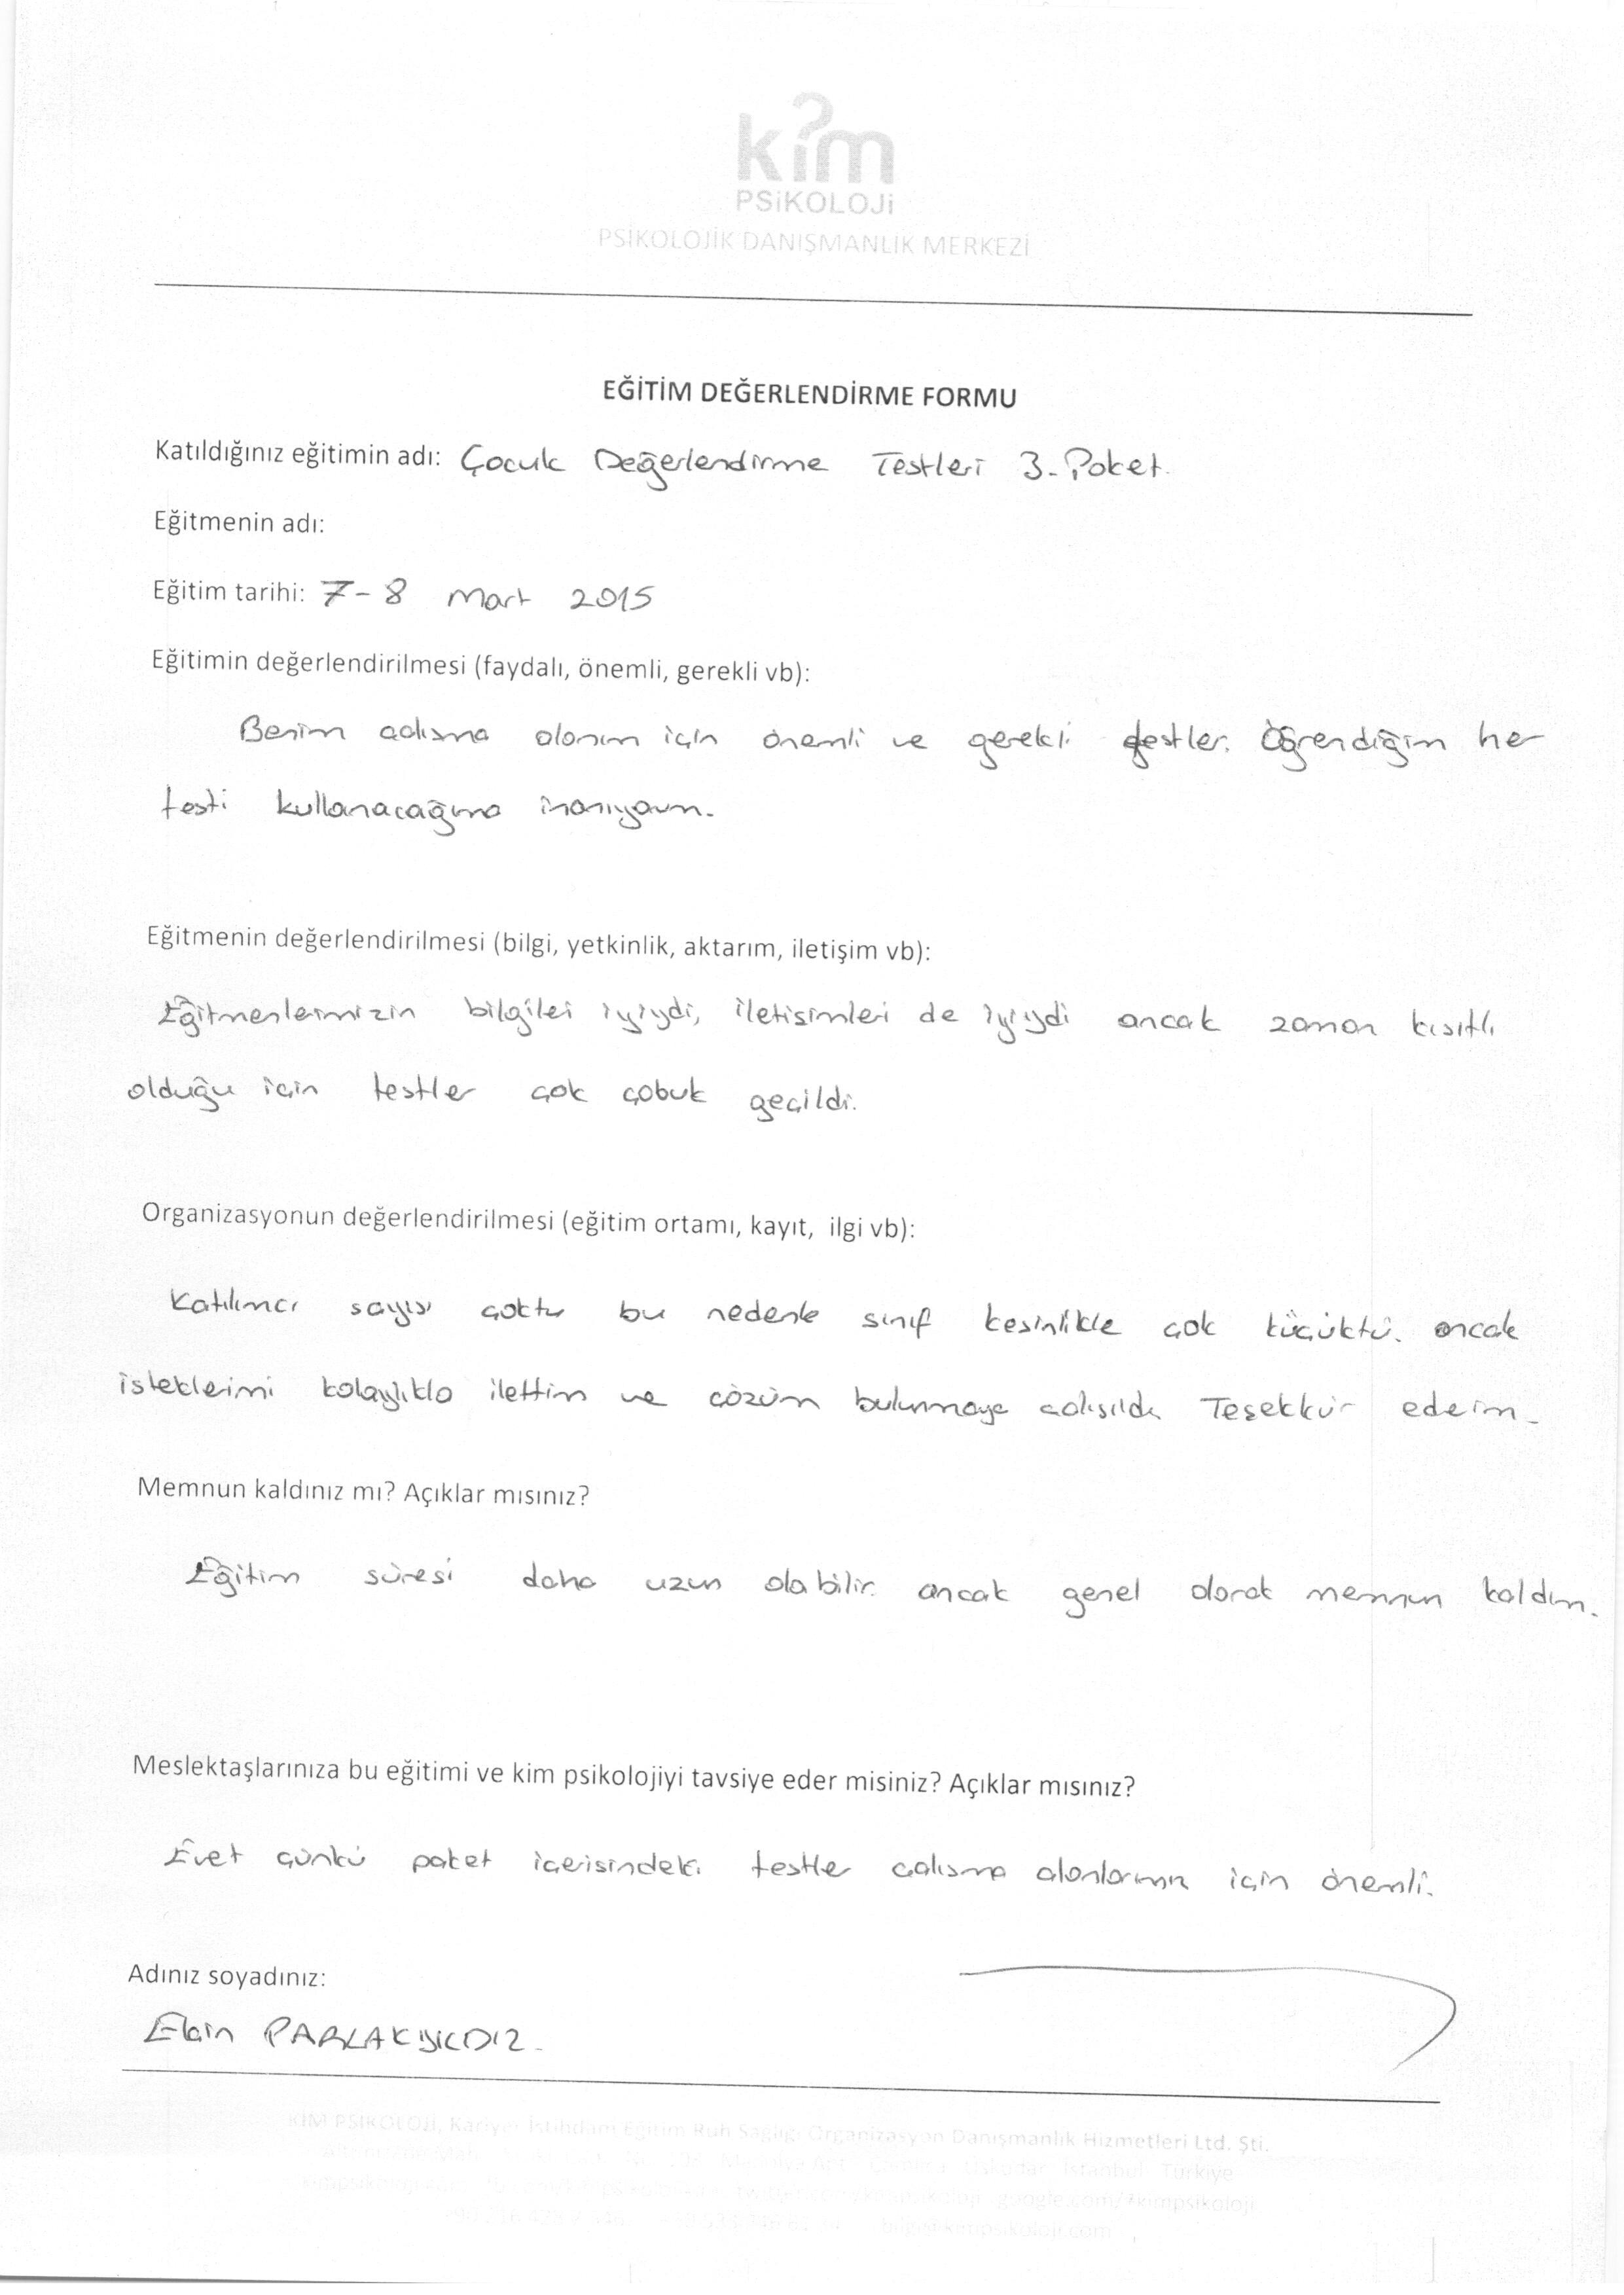 kim
PSiKOLOJi
PSİKOLOJİK DANIŞMANLIK MERKEZİ
EĞİTİM DEĞERLENDİRME FORMU
Katıldığınız eğitimin adı: Çocuk Değerlendirme Testleri 3. Paket.
Eğitmenin adı:
Eğitim tarihi: 7-8 Mart 2015
Eğitimin değerlendirilmesi (faydalı, önemli, gerekli vb):
Benim çalışma alanım için önemli ve gerekli testler. Öğrendiğim her
testi kullanacağıma inanıyorum.
Eğitmenin değerlendirilmesi (bilgi, yetkinlik, aktarım, iletişim vb):
Eğitmenlerimizin bilgileri iyiydi, iletişimleri de iyiydi ancak zaman kısıtlı
olduğu için testler çok çabuk geçildi.
Organizasyonun değerlendirilmesi (eğitim ortamı, kayıt, ilgi vb):
Katılımcı sayısı çoktu bu nedenle sınıf kesinlikle çok küçüktü. ancak
isteklerimi kolaylıkla ilettim ve çözüm bulunmaya çalışıldı. Teşekkür ederim.
Memnun kaldınız mı? Açıklar mısınız?
Eğitim süresi daha uzun olabilir. ancak genel olarak memnun kaldım.
Meslektaşlarınıza bu eğitimi ve kim psikolojiyi tavsiye eder misiniz? Açıklar mısınız?
Evet çünkü paket içerisindeki testler çalışma alanlarımız için önemli.
Adınız soyadınız:
Elçin PARLAKYILDIZ.
KİM PSİKOLOJİ, Kariyer İstihdam Eğitim Ruh Sağlığı Organizasyon Danışmanlık Hizmetleri Ltd. Şti.
Çamlıca Üsküdar İstanbul Türkiye
google.com/+kimpsikoloji
bilgi@kimpsikoloji.com